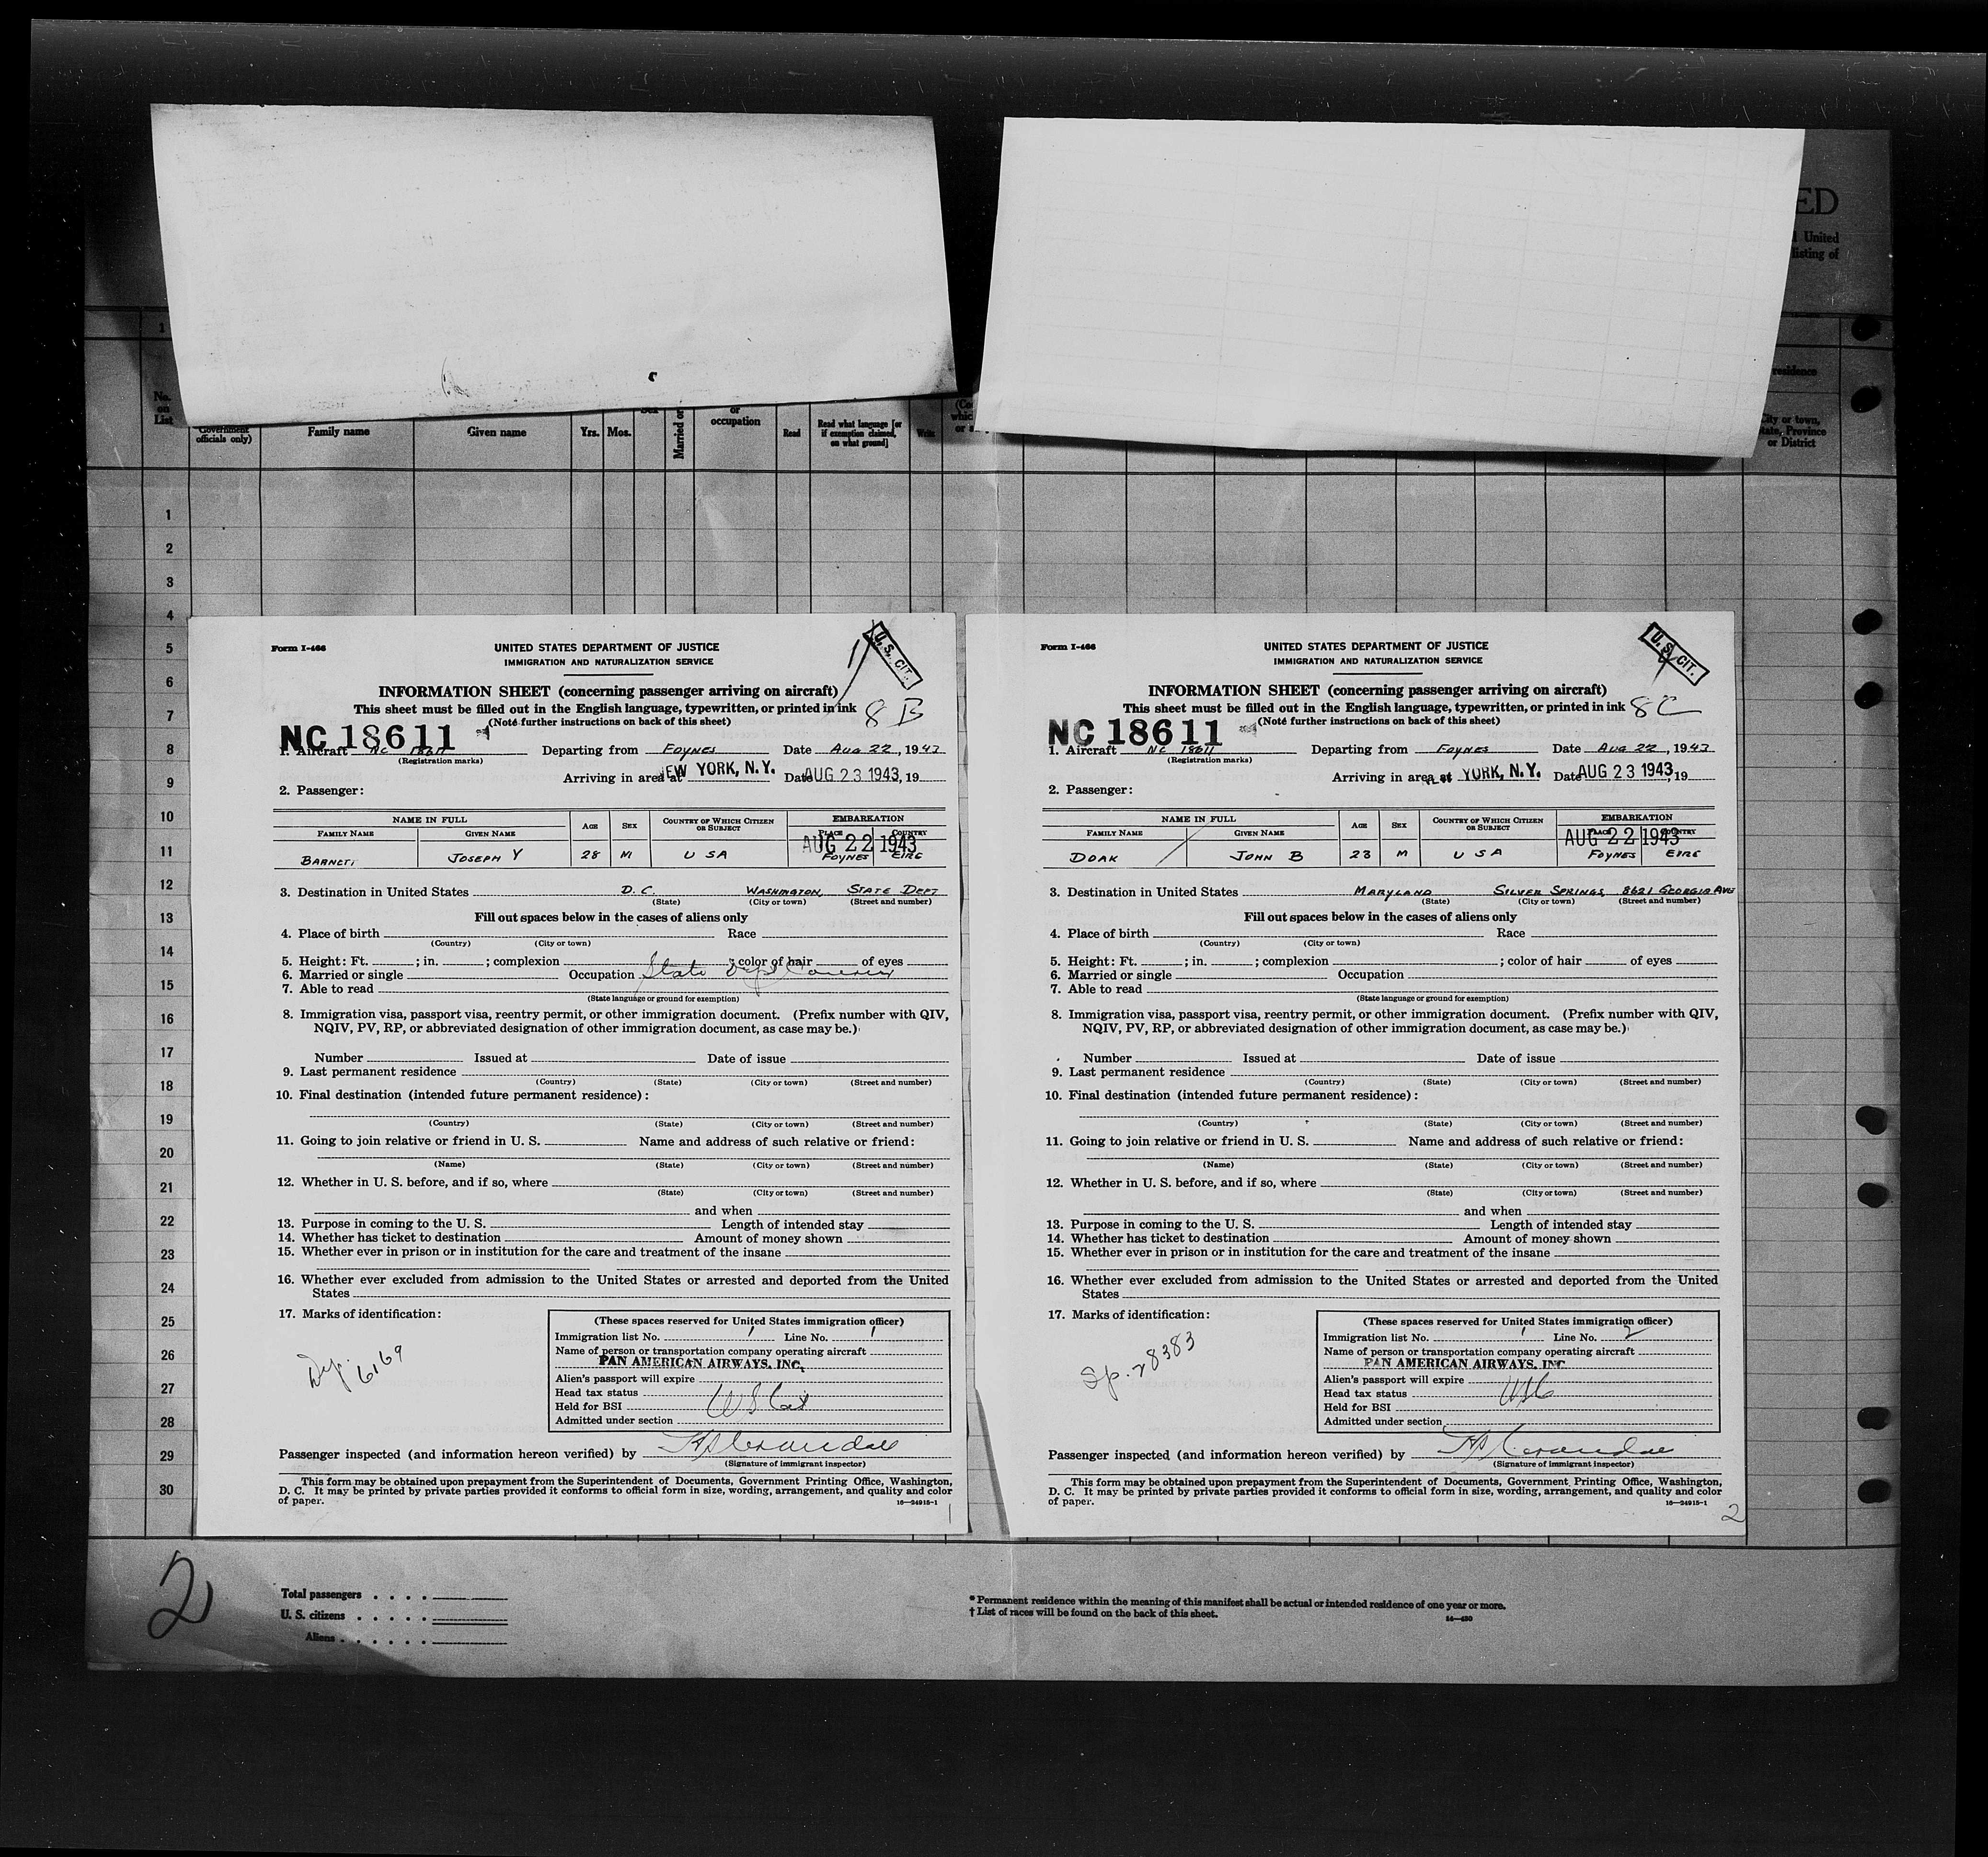 ED
l United
listing of
1
residence
No. on List
Government officials only)
Family name
Given name
Yrs.
Mos.
Sex
Married or
or occupation
Read
Read what language [or if exemption claimed, on what ground]
Write
City or town, State, Province or District
1
2
3
4
5
6
7
8
9
10
11
12
13
14
15
16
17
18
19
20
21
22
23
24
25
26
27
28
29
30
Form I-466
UNITED STATES DEPARTMENT OF JUSTICE
IMMIGRATION AND NATURALIZATION SERVICE
U. S. CIT.
INFORMATION SHEET (concerning passenger arriving on aircraft)
This sheet must be filled out in the English language, typewritten, or printed in ink
8 B
(Note further instructions on back of this sheet)
NC 18611
1. Aircraft NC 18611 Departing from FOYNES Date AUG 22, 1943
(Registration marks)
Arriving in area at NEW YORK, N.Y. Date AUG 23 1943, 19
2. Passenger:
NAME IN FULL AGE SEX COUNTRY OF WHICH CITIZEN OR SUBJECT EMBARKATION
FAMILY NAME GIVEN NAME PLACE COUNTRY
AUG 22 1943
BARNETT JOSEPH Y 28 M U SA FOYNES EIRE
3. Destination in United States D.C. WASHINGTON, STATE DEPT
(State) (City or town) (Street and number)
Fill out spaces below in the cases of aliens only
4. Place of birth Race
(Country) (City or town)
5. Height: Ft. ; in. ; complexion ; color of hair of eyes
6. Married or single Occupation State Dept Courier
7. Able to read
(State language or ground for exemption)
8. Immigration visa, passport visa, reentry permit, or other immigration document. (Prefix number with QIV,
NQIV, PV, RP, or abbreviated designation of other immigration document, as case may be.)
Number Issued at Date of issue
9. Last permanent residence
(Country) (State) (City or town) (Street and number)
10. Final destination (intended future permanent residence):
(Country) (State) (City or town) (Street and number)
11. Going to join relative or friend in U. S. Name and address of such relative or friend:
(Name) (State) (City or town) (Street and number)
12. Whether in U. S. before, and if so, where
(State) (City or town) (Street and number)
and when
13. Purpose in coming to the U. S. Length of intended stay
14. Whether has ticket to destination Amount of money shown
15. Whether ever in prison or in institution for the care and treatment of the insane
16. Whether ever excluded from admission to the United States or arrested and deported from the United
States
17. Marks of identification:
Dip. 6169
(These spaces reserved for United States immigration officer)
Immigration list No. 1 Line No. 1
Name of person or transportation company operating aircraft
PAN AMERICAN AIRWAYS, INC.
Alien's passport will expire
Head tax status
Held for BSI
Admitted under section
Passenger inspected (and information hereon verified) by
(Signature of immigrant inspector)
This form may be obtained upon prepayment from the Superintendent of Documents, Government Printing Office, Washington,
D. C. It may be printed by private parties provided it conforms to official form in size, wording, arrangement, and quality and color
of paper.
16—24915-1
1
Form I-466
UNITED STATES DEPARTMENT OF JUSTICE
IMMIGRATION AND NATURALIZATION SERVICE
U. S. CIT.
INFORMATION SHEET (concerning passenger arriving on aircraft)
This sheet must be filled out in the English language, typewritten, or printed in ink
8 C
(Note further instructions on back of this sheet)
NC 18611
1. Aircraft NC 18611 Departing from FOYNES Date AUG 22, 1943
(Registration marks)
Arriving in area at YORK, N.Y. Date AUG 23 1943, 19
2. Passenger:
NAME IN FULL AGE SEX COUNTRY OF WHICH CITIZEN OR SUBJECT EMBARKATION
FAMILY NAME GIVEN NAME PLACE COUNTRY
AUG 22 1943
DOAK JOHN B 23 M U S A FOYNES EIRE
3. Destination in United States MARYLAND SILVER SPRINGS, 8621 GEORGIA AVE
(State) (City or town) (Street and number)
Fill out spaces below in the cases of aliens only
4. Place of birth Race
(Country) (City or town)
5. Height: Ft. ; in. ; complexion ; color of hair of eyes
6. Married or single Occupation
7. Able to read
(State language or ground for exemption)
8. Immigration visa, passport visa, reentry permit, or other immigration document. (Prefix number with QIV,
NQIV, PV, RP, or abbreviated designation of other immigration document, as case may be.)
Number Issued at Date of issue
9. Last permanent residence
(Country) (State) (City or town) (Street and number)
10. Final destination (intended future permanent residence):
(Country) (State) (City or town) (Street and number)
11. Going to join relative or friend in U. S. Name and address of such relative or friend:
(Name) (State) (City or town) (Street and number)
12. Whether in U. S. before, and if so, where
(State) (City or town) (Street and number)
and when
13. Purpose in coming to the U. S. Length of intended stay
14. Whether has ticket to destination Amount of money shown
15. Whether ever in prison or in institution for the care and treatment of the insane
16. Whether ever excluded from admission to the United States or arrested and deported from the United
States
17. Marks of identification:
Sp. 28383
(These spaces reserved for United States immigration officer)
Immigration list No. 1 Line No. 2
Name of person or transportation company operating aircraft
PAN AMERICAN AIRWAYS, INC
Alien's passport will expire
Head tax status
Held for BSI
Admitted under section
Passenger inspected (and information hereon verified) by
(Signature of immigrant inspector)
This form may be obtained upon prepayment from the Superintendent of Documents, Government Printing Office, Washington,
D. C. It may be printed by private parties provided it conforms to official form in size, wording, arrangement, and quality and color
of paper.
16—24915-1
2
2
Total passengers
U. S. citizens
Aliens
* Permanent residence within the meaning of this manifest shall be actual or intended residence of one year or more.
† List of races will be found on the back of this sheet.